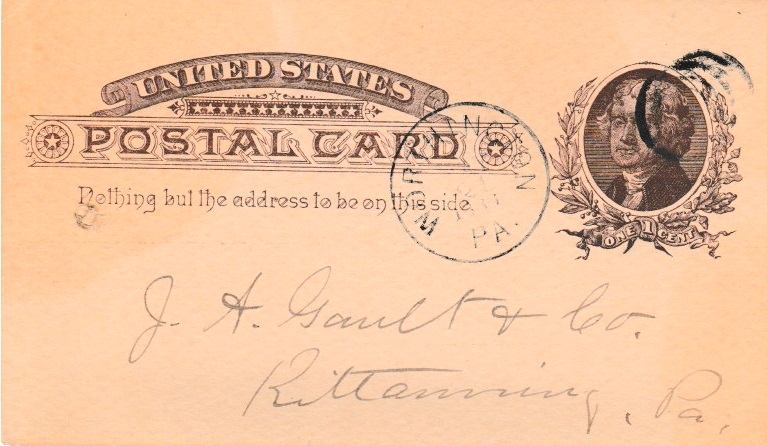 UNITED STATES
POSTAL CARD
Nothing but the address to be on this side.
WORTHINGTON
PA.
ONE 1 CENT
J. A. Gault & Co.
Kittanning, Pa.